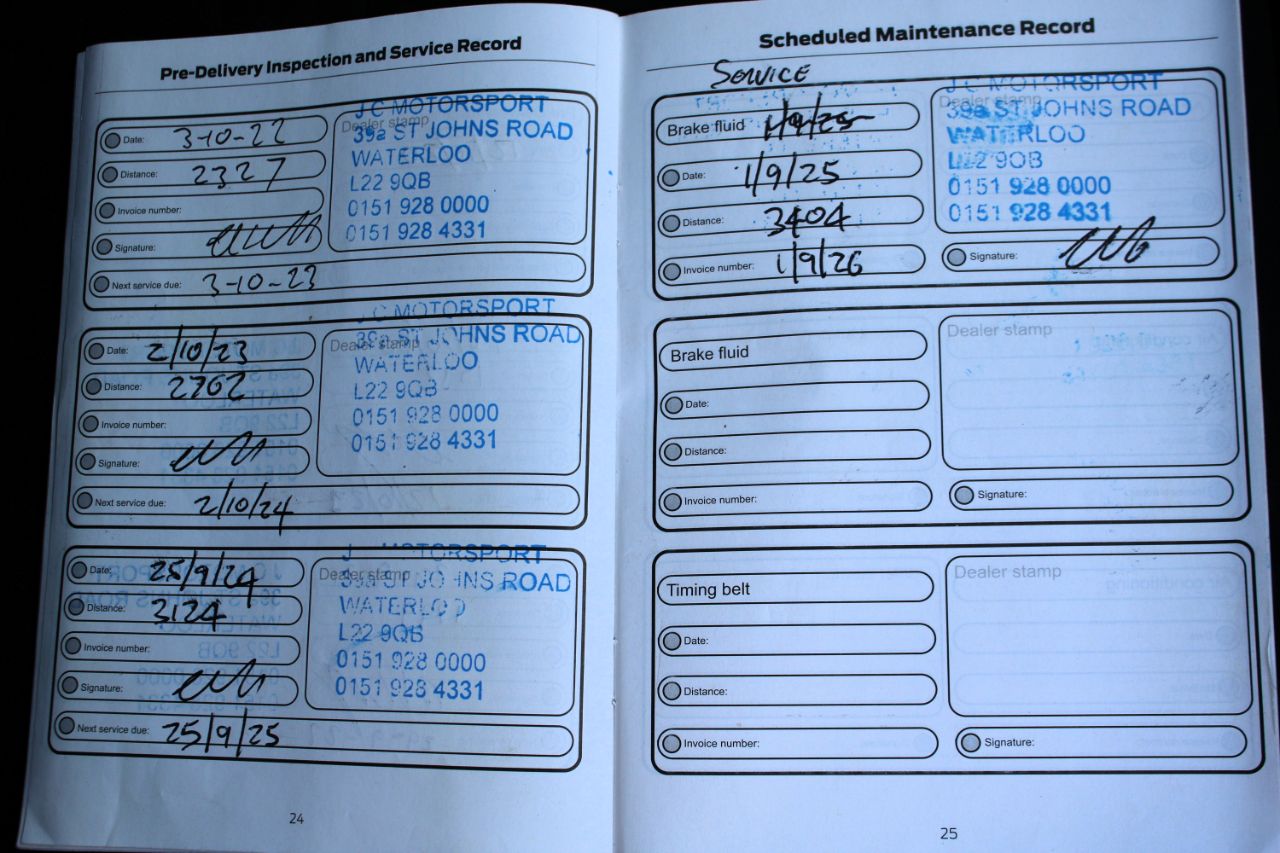 Pre-Delivery Inspection and Service Record
Date: 3-10-22
Distance: 2327
Invoice number:
Signature:
Next service due: 3-10-23
Dealer stamp
J C MOTORSPORT
39a ST JOHNS ROAD
WATERLOO
L22 9QB
0151 928 0000
0151 928 4331
Date: 2/10/23
Distance: 2702
Invoice number:
Signature:
Next service due: 2/10/24
Dealer stamp
J C MOTORSPORT
39a ST JOHNS ROAD
WATERLOO
L22 9QB
0151 928 0000
0151 928 4331
Date: 25/9/24
Distance: 3124
Invoice number:
Signature:
Next service due: 25/9/25
Dealer stamp
J MOTORSPORT
39a ST JOHNS ROAD
WATERLOO
L22 9QB
0151 928 0000
0151 928 4331
24
Scheduled Maintenance Record
SERVICE
Brake fluid 1/9/25
Date: 1/9/25
Distance: 3404
Invoice number: 1/9/26
Dealer stamp
J C MOTORSPORT
39a ST JOHNS ROAD
WATERLOO
L22 9QB
0151 928 0000
0151 928 4331
Signature:
Brake fluid
Date:
Distance:
Invoice number:
Dealer stamp
Signature:
Timing belt
Date:
Distance:
Invoice number:
Dealer stamp
Signature:
25